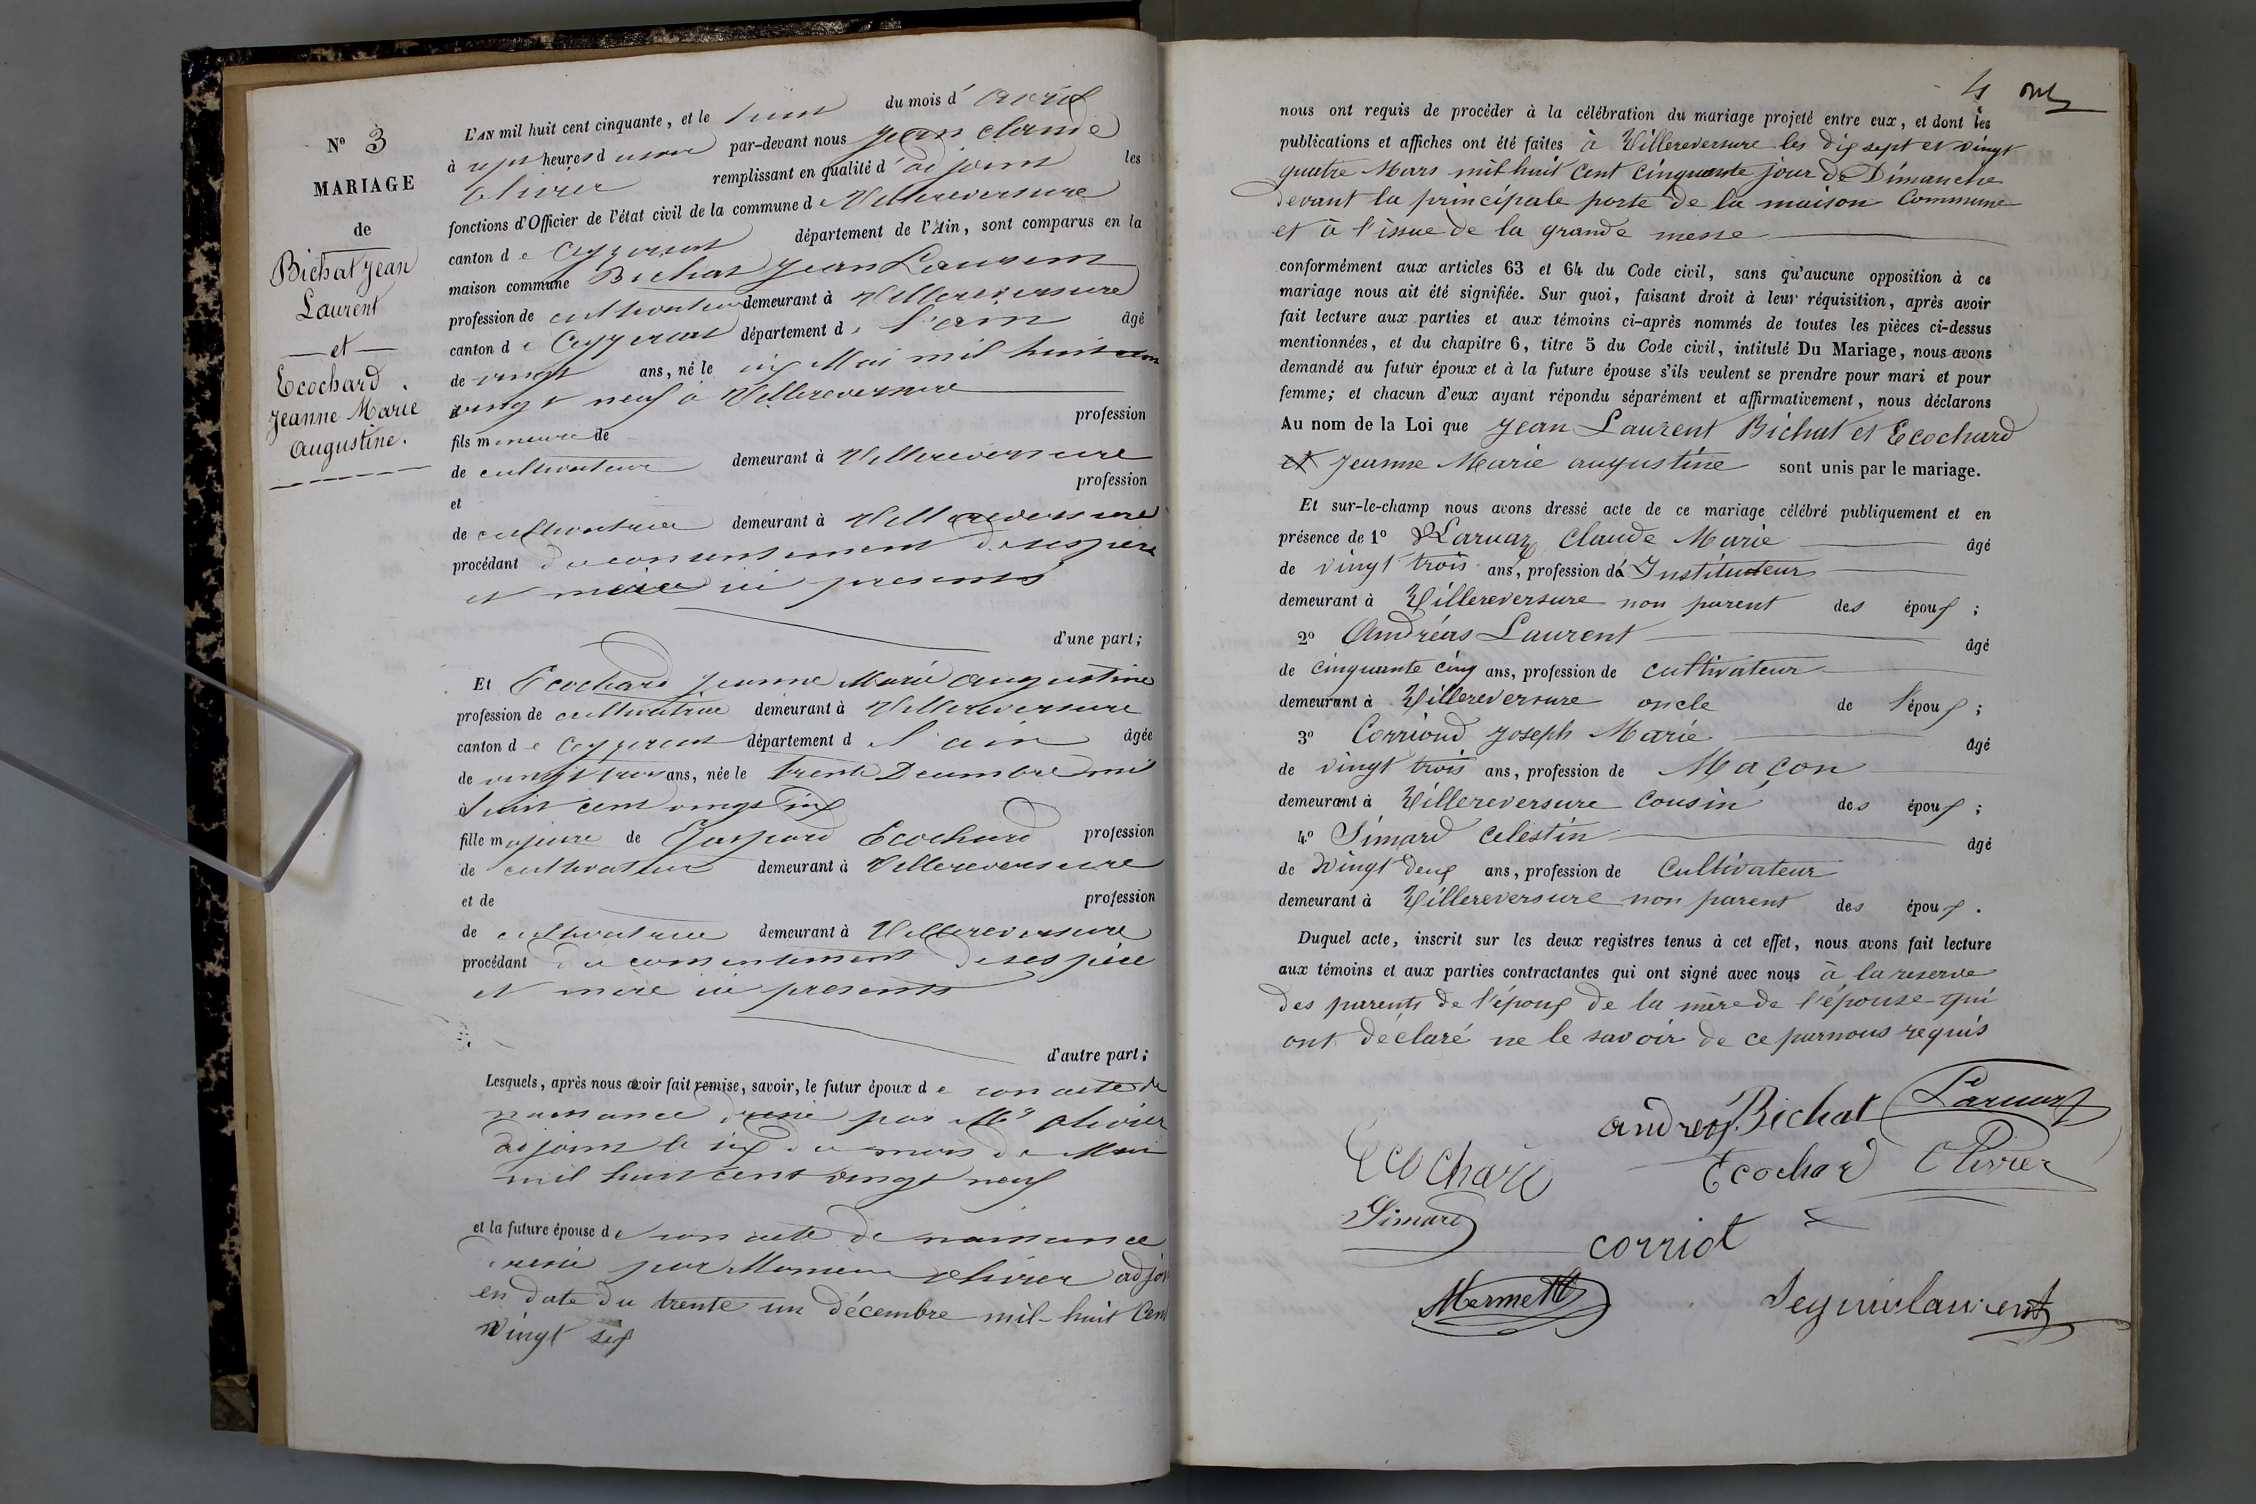 N° 3
MARIAGE
de
Bichat Jean
Laurent
et
Ecochard
Jeanne Marie
augustine.
L'AN mil huit cent cinquante, et le huit du mois d' avril
à sept heures du soir par-devant nous Jean claude
Olivier remplissant en qualité d' adjoint les
fonctions d'Officier de l'état civil de la commune de Villereversure
canton de Ceyzeriat département de l'Ain, sont comparus en la
maison commune Bichat Jean Laurent
profession de cultivateur demeurant à Villereversure
canton de Ceyzeriat département de l'ain âgé
de vingt ans, né le six Mai mil huit cent
vingt neuf à Villereversure
fils mineur de profession
de cultivateur demeurant à Villereversure
et profession
de cultivatrice demeurant à Villereversure
procédant du consentement de ses père
et mère ici presents
d'une part;
Et Ecochard Jeanne Marie augustine
profession de cultivatrice demeurant à Villereversure
canton de Ceyzeriat département d l'ain âgée
de vingt trois ans, née le trente Decembre mil
à huit cent vingt six
fille majeure de Gaspard Ecochard profession
de cultivateur demeurant à Villereversure
et de profession
de cultivatrice demeurant à Villereversure
procédant du consentement de ses père
et mère ici presents
d'autre part;
Lesquels, après nous avoir fait remise, savoir, le futur époux de son acte de
naissance par Mr Olivier
adjoint le six du mois de Mai
mil huit cent vingt neuf
et la future épouse de son acte de naissance
par Monsieur Olivier adjoi
en date du trente un décembre mil-huit Cent
vingt six
4
nous ont requis de procéder à la célébration du mariage projeté entre eux, et dont les
publications et affiches ont été faites à Villereversure les dix sept et vingt
quatre Mars mil huit Cent Cinquante jour de Dimanche
devant la principale porte de la maison Commune
et à l'issue de la grande messe
conformément aux articles 63 et 64 du Code civil, sans qu'aucune opposition à ce
mariage nous ait été signifiée. Sur quoi, faisant droit à leur réquisition, après avoir
fait lecture aux parties et aux témoins ci-après nommés de toutes les pièces ci-dessus
mentionnées, et du chapitre 6, titre 5 du Code civil, intitulé Du Mariage, nous avons
demandé au futur époux et à la future épouse s'ils veulent se prendre pour mari et pour
femme; et chacun d'eux ayant répondu séparément et affirmativement, nous déclarons
Au nom de la Loi que Jean Laurent Bichat et Ecochard
et Jeanne Marie augustine sont unis par le mariage.
Et sur-le-champ nous avons dressé acte de ce mariage célébré publiquement et en
présence de 1° Laruaz Claude Marie âgé
de vingt trois ans, profession d'Instituteur
demeurant à Villereversure non parent des époux;
2° Andréas Laurent âgé
de cinquante cinq ans, profession de cultivateur
demeurant à Villereversure oncle de l'époux;
3° Corrioud Joseph Marie âgé
de vingt trois ans, profession de Maçon
demeurant à Villereversure Cousin des époux;
4° Simard Celestin âgé
de Vingt deux ans, profession de Cultivateur
demeurant à Villereversure non parent des époux.
Duquel acte, inscrit sur les deux registres tenus à cet effet, nous avons fait lecture
aux témoins et aux parties contractantes qui ont signé avec nous à la reserve
des parents de l'époux de la mère de l'épouse qui
ont déclaré ne le savoir de ce par nous requis
andrey Bichat Laruaz
Ecochard Ecochard Olivier
Simard
corriot
Mermet
Seguin laurent